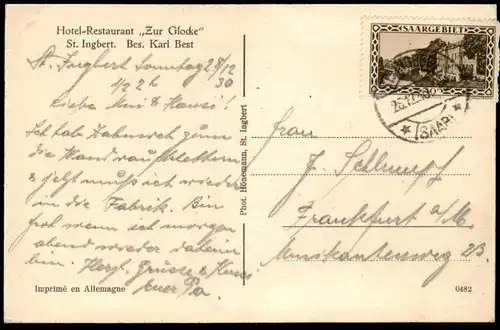 Hotel-Restaurant „Zur Glocke"
St. Ingbert. Bes. Karl Best
St. Ingbert Sonntag 28/12
1/2 2h 30
Liebe Mui & Hansi!
Ich hab Zahnweh zum
die Wand
& jetzt muss ich wieder
in die Fabrik. Bin
froh wenn ich morgen
abend wieder daheim
bin. Herzl. Grüsse & Küsse
Euer Pa.
Imprimé en Allemagne
Phot. Hönemann, St. Ingbert
SAARGEBIET
(SAAR)
Frau
J. Schlumpf
Frankfurt a/M.
Musikantenweg 23
0482